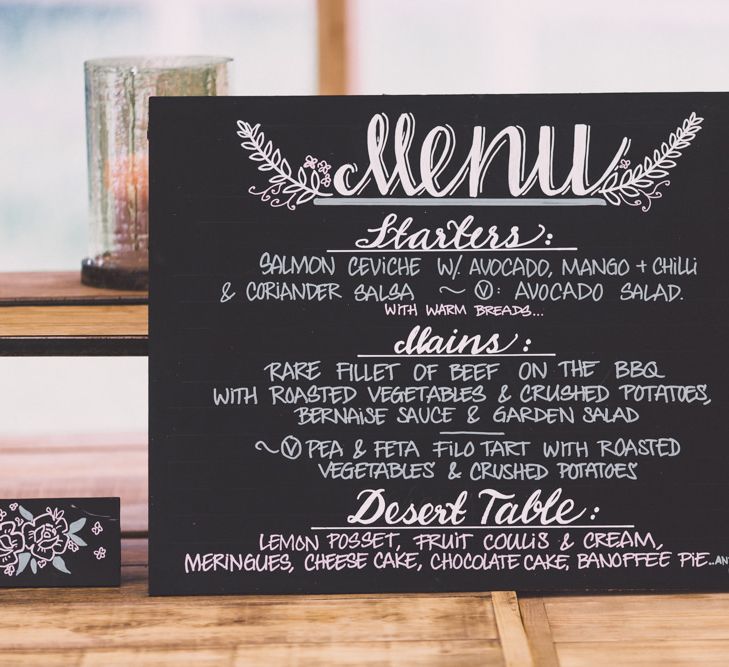 Menu
Starters:
SALMON CEVICHE W/. AVOCADO, MANGO + CHILLI
& CORIANDER SALSA ~ Ⓥ: AVOCADO SALAD.
WITH WARM BREADS...
Mains:
RARE FILLET OF BEEF ON THE BBQ
WITH ROASTED VEGETABLES & CRUSHED POTATOES,
BERNAISE SAUCE & GARDEN SALAD
~Ⓥ PEA & FETA FILO TART WITH ROASTED
VEGETABLES & CRUSHED POTATOES
Desert Table:
LEMON POSSET, FRUIT COULIS & CREAM,
MERINGUES, CHEESE CAKE, CHOCOLATE CAKE, BANOFFEE PIE..